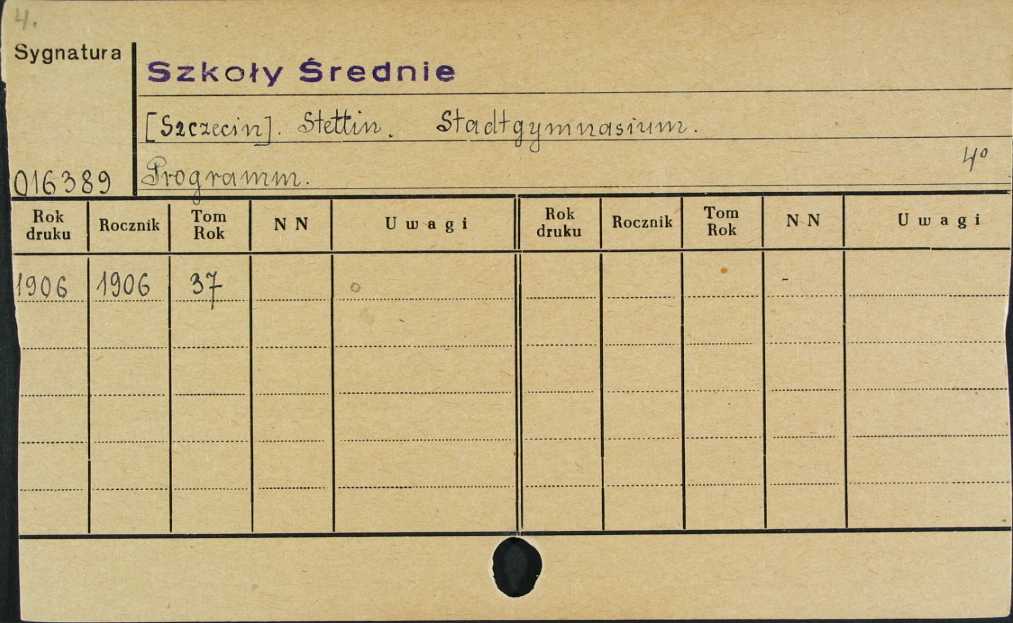 4.
Sygnatura
Szkoły Średnie
[Szczecin]. Stettin. Stadtgymnasium.
4°
016389 Programm.
Rok druku Rocznik Tom Rok N N Uwagi Rok druku Rocznik Tom Rok N N Uwagi
1906 1906 37